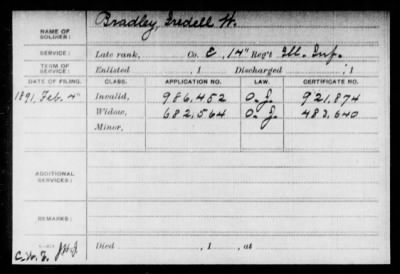 NAME OF SOLDIER: Bradley, Iredell W.
SERVICE: Late rank, Co. C, 14" Reg't Ill. Inf.
TERM OF SERVICE: Enlisted , 1 Discharged , 1
DATE OF FILING. CLASS. APPLICATION NO. LAW. CERTIFICATE NO.
1891, Feb. 4" Invalid, 986,452 O. J. 921,874
Widow, 682,564 O. J. 483,640
Minor,
ADDITIONAL SERVICES:
REMARKS:
Died , 1 , at